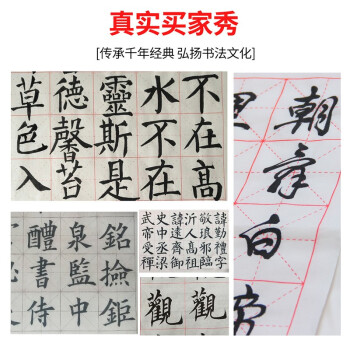 真实买家秀
[传承千年经典 弘扬书法文化]
不在高
水不在
靈斯是
德馨苔
草色入
朝辞白
銘撿鉅
泉監中
醴書侍
諱勤禮字
敬琅邪臨
沂人高祖
諱遠齊御
史中丞梁
武帝受禪
觀觀